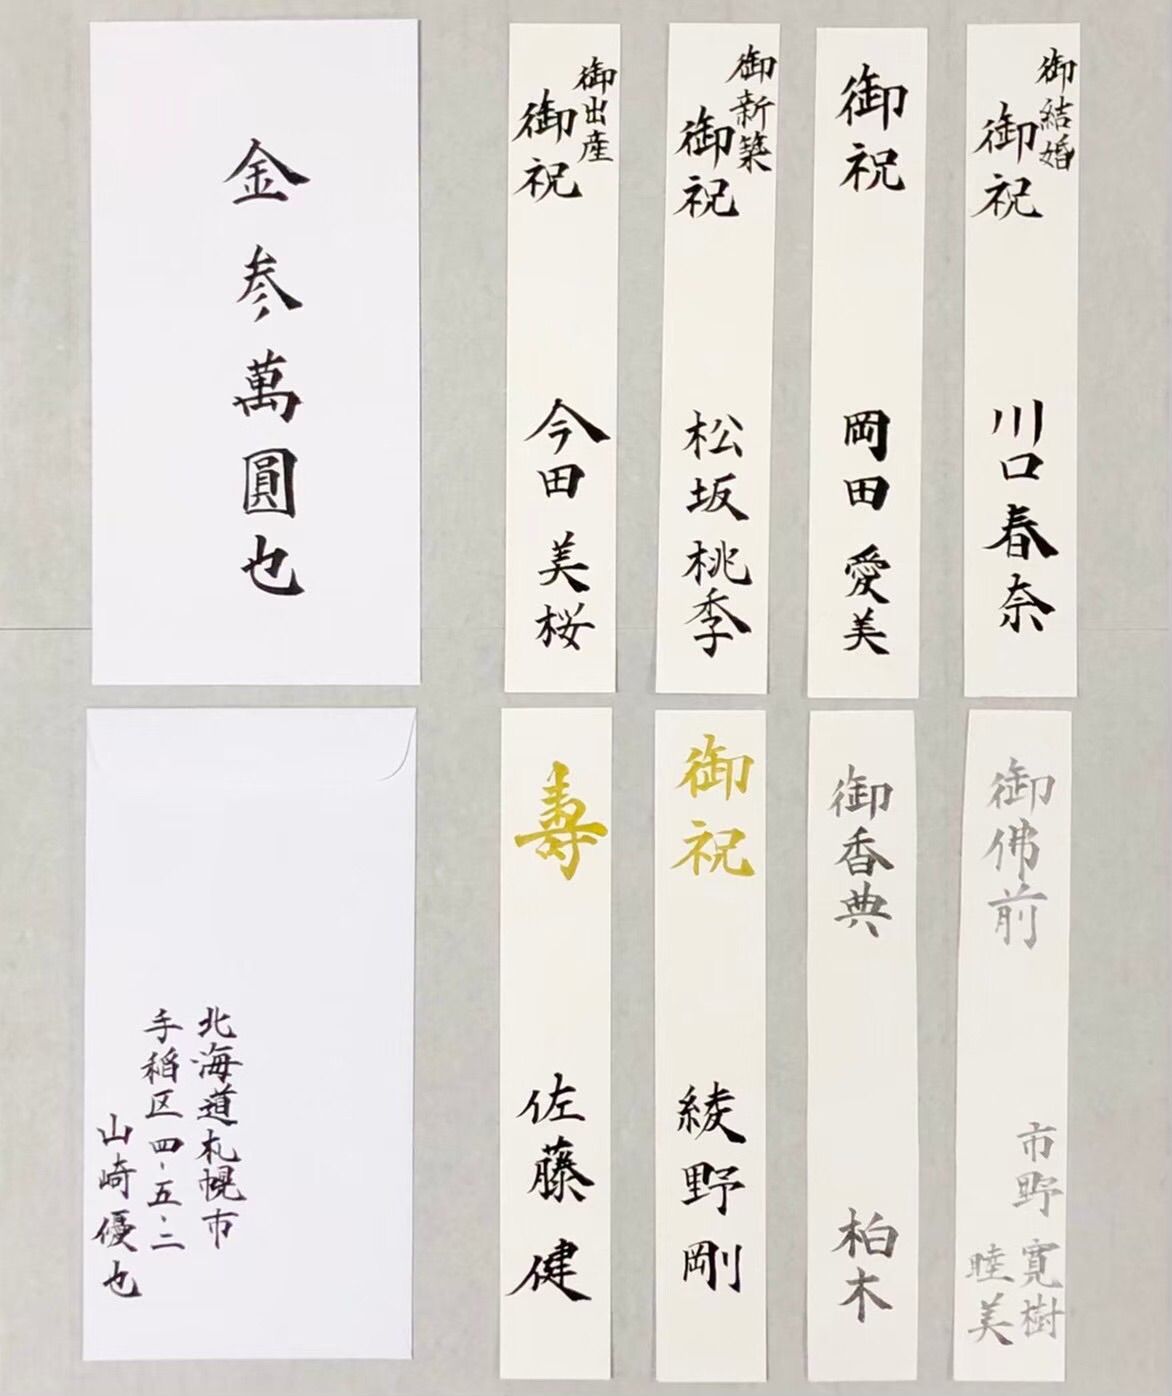 金参萬圓也
御出産
御祝
今田美桜
御新築
御祝
松坂桃季
御祝
岡田愛美
御結婚
御祝
川口春奈
北海道札幌市
手稲区四-五-二
山崎優也
寿
佐藤健
御祝
綾野剛
御香典
柏木
御佛前
市野寛樹
睦美